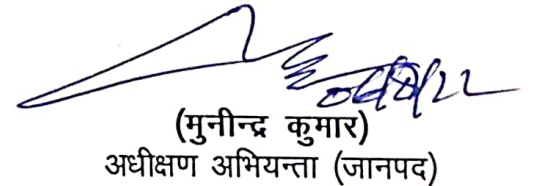 (मुनीन्द्र कुमार)
अधीक्षण अभियन्ता (जानपद)